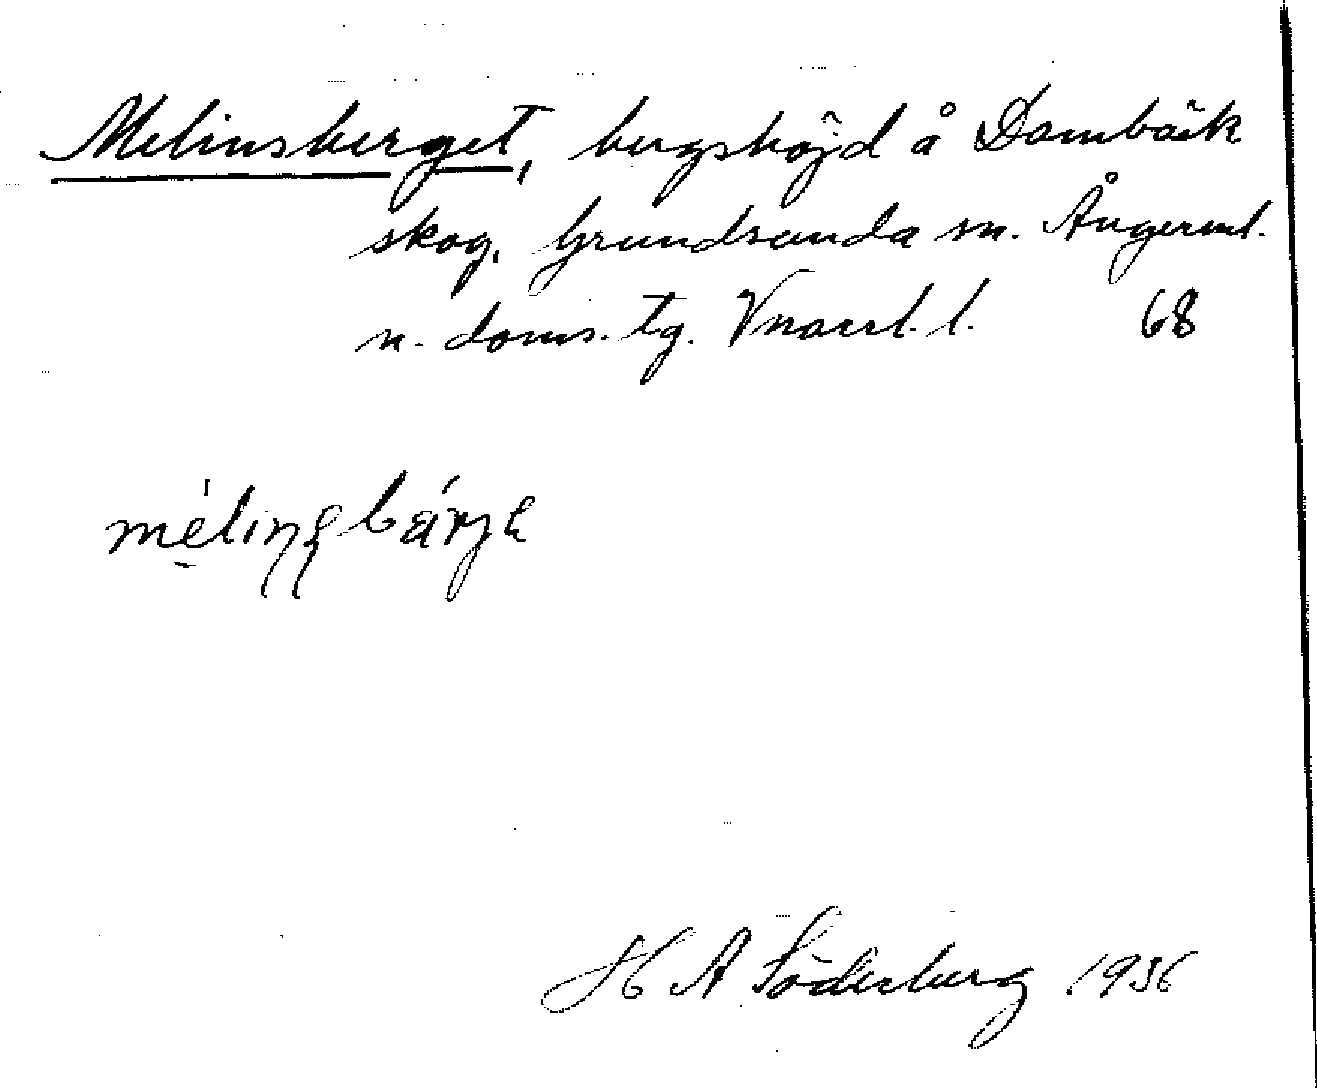 Melinsberget, bergshöjd å Dombäck
skog, Grundsunda sn. Ångerml.
n. doms. tg. Vnorrl. l. 68
H A Söderberg 1936